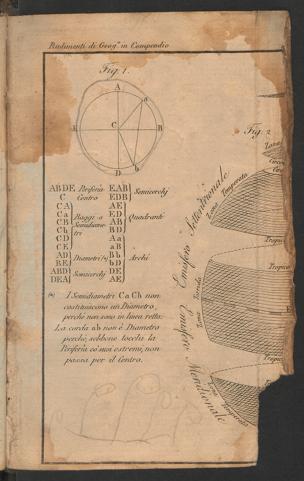 Rudimenti di Geog.ª in Compendio
Fig. 1.
A
a
E
C
B
D
b
Fig. 2
ABDE Periferia
C Centro
CA
Ca
CB
Cb
CD
CE
Raggi o
Semidiametri
AD
BE
Diametri
ABD
DEA
Semicerchj
EAB
EDB
Semicerchj
AE
ED
AB
BD
Quadranti
Aa
aB
Bb
bD
DE
AE
Archi
(*) I Semidiametri Ca Cb non
costituiscono un Diametro,
perchè non sono in linea retta;
La corda ab non è Diametro
perchè, sebbene tocchi la
Periferia co' suoi estremi, non
passa per il Centro.
Emisfero Settentrionale
Emisfero Meridionale
Zona
Zona Temperata
Tropico
Zona Torrida
Tropico
Zona Temperata